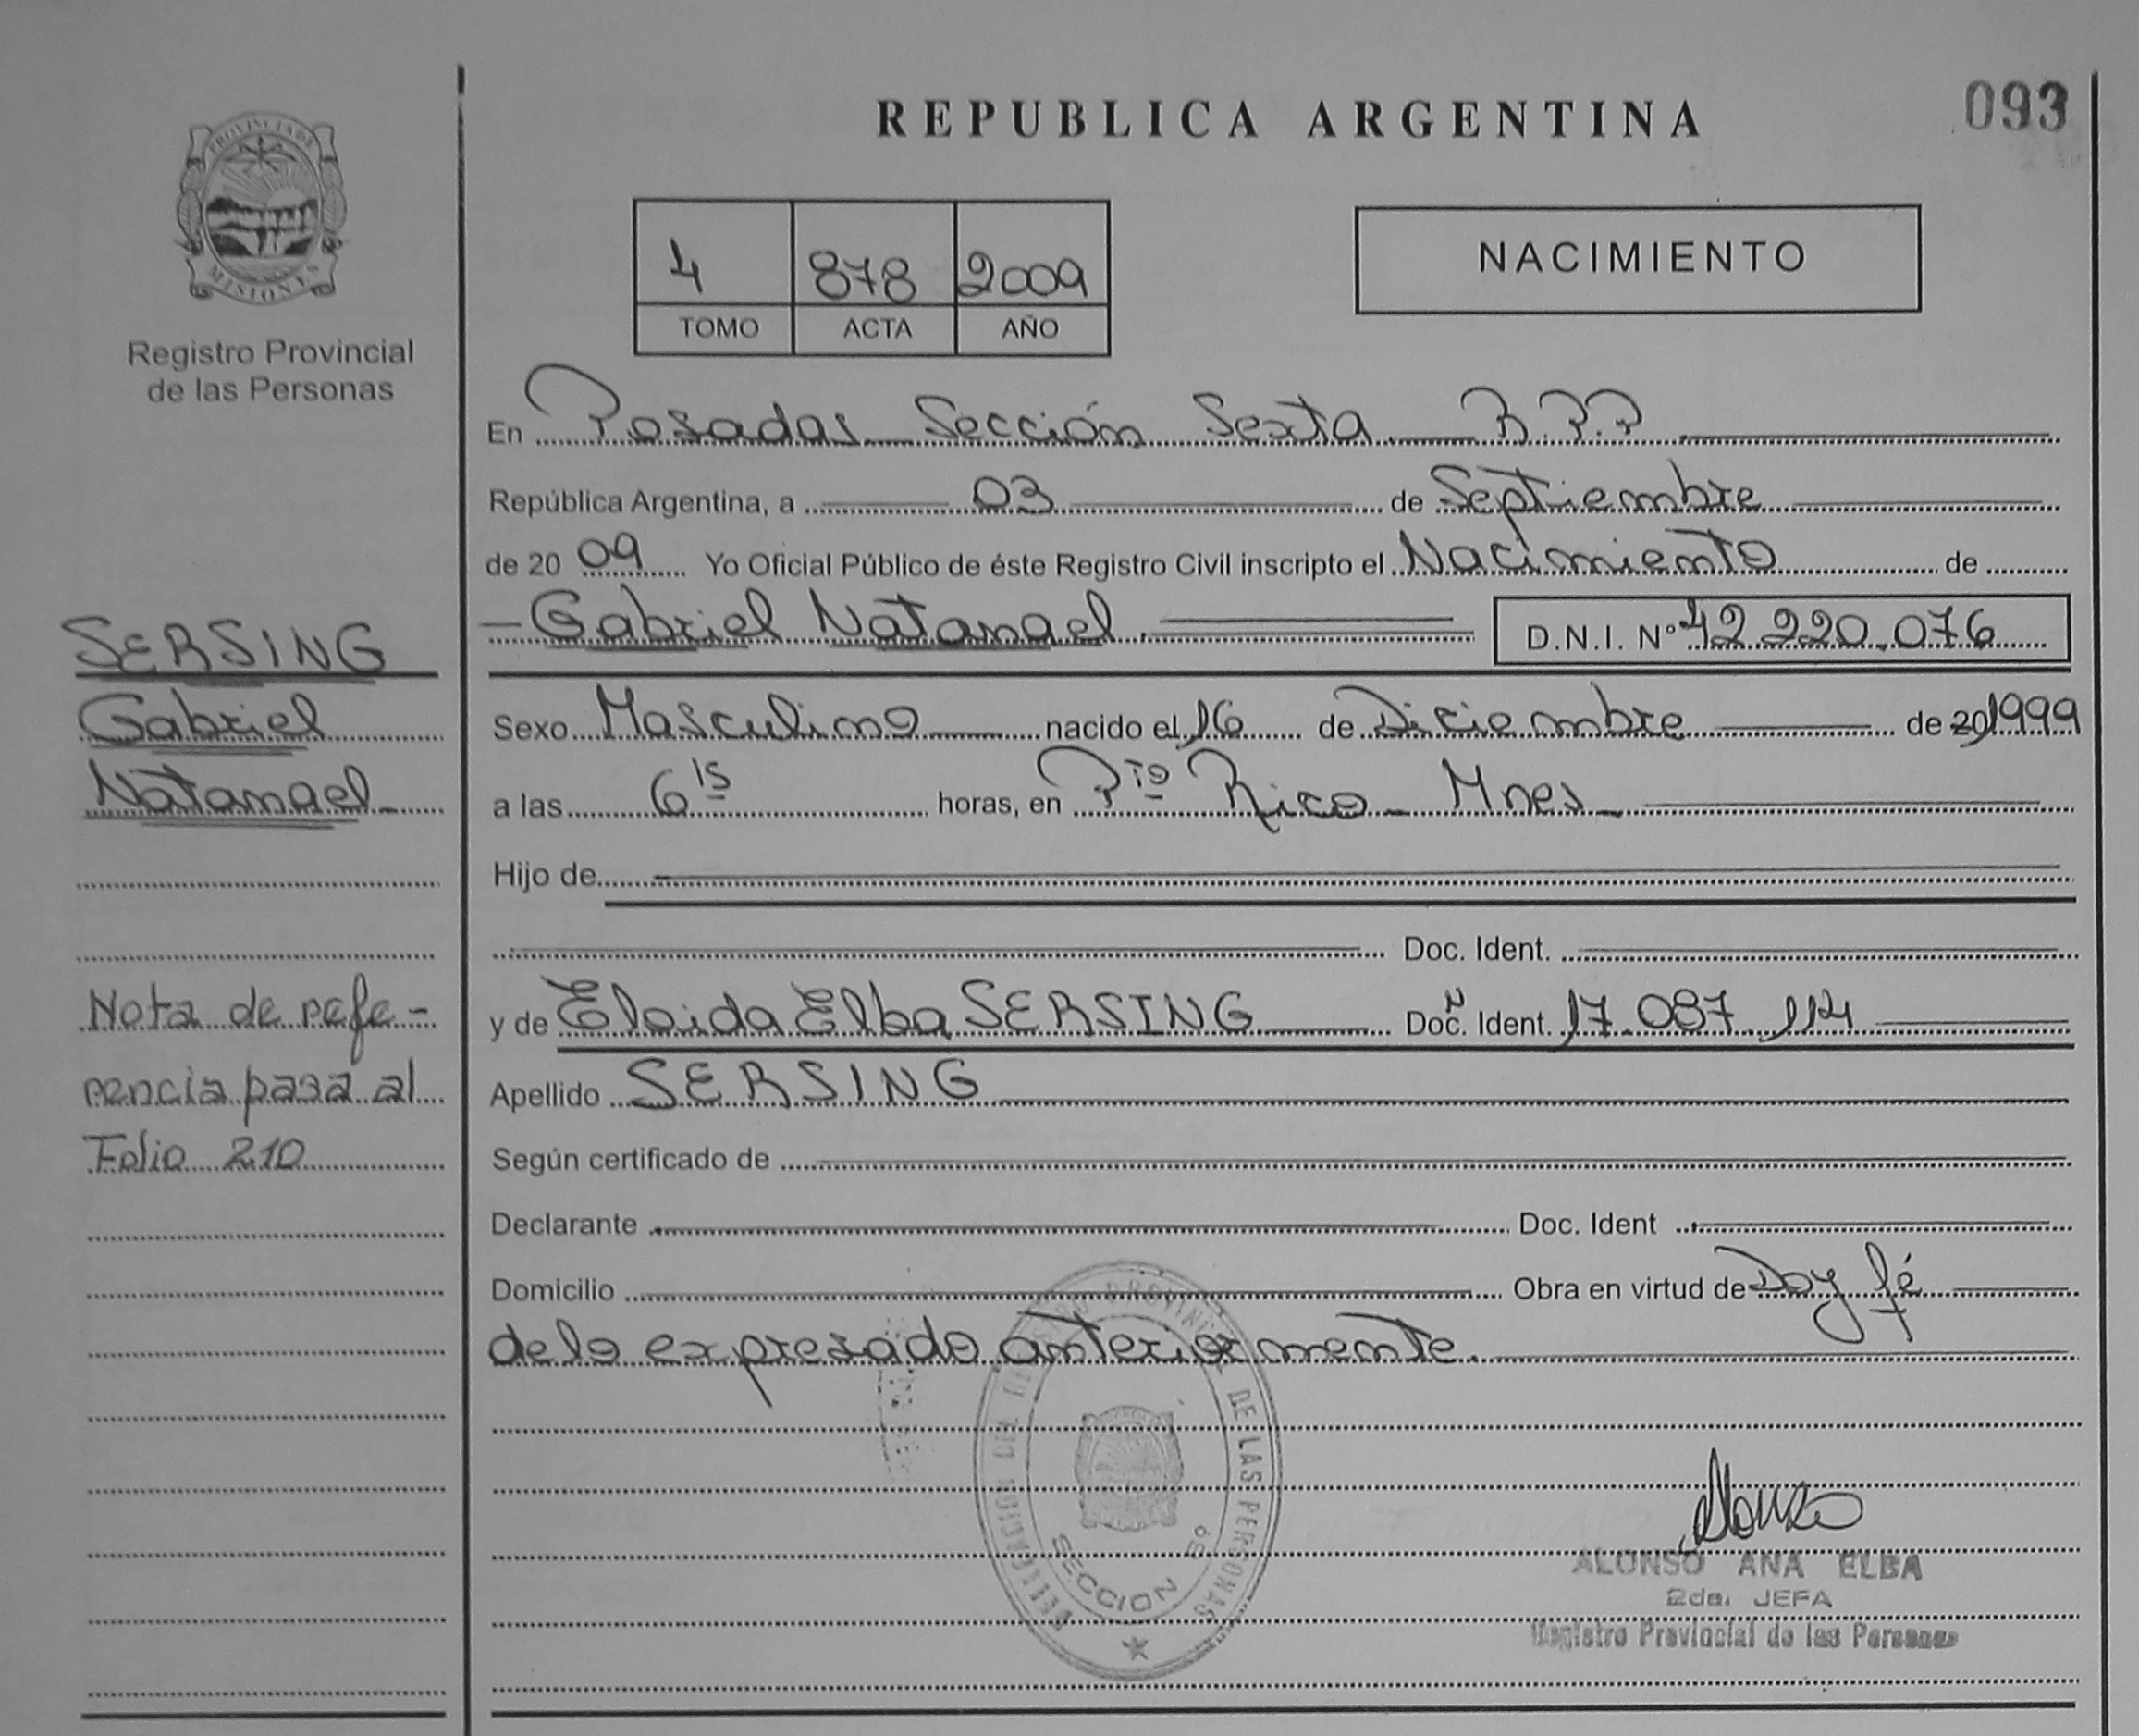 REPUBLICA ARGENTINA
093
PROVINCIA DE
MISIONES
Registro Provincial
de las Personas
4 878 2009
TOMO ACTA AÑO
NACIMIENTO
En Posadas Sección Sexta R.P.P
República Argentina, a 03 de Septiembre
de 20 09 Yo Oficial Público de éste Registro Civil inscripto el Nacimiento de
Gabriel Natanael. D.N.I. Nº 42.220.076
Sexo Masculino nacido el 16 de Diciembre de 20 1999
a las 6 15 horas, en Pto Rico - Mnes -
Hijo de
Doc. Ident.
y de Eloida Elba SERSING Doc. Ident. 17.087.114
Apellido SERSING
Según certificado de
Declarante Doc. Ident
Domicilio Obra en virtud de Doy fé
de lo expresado anteriormente.
SERSING
Gabriel
Natanael
Nota de refe-
rencia pasa al
Folio 210
PROVINCIAL DE LAS PERSONAS
SECCION 6º
Alonso
ALONSO ANA ELBA
2da. JEFA
Registro Provincial de las Personas